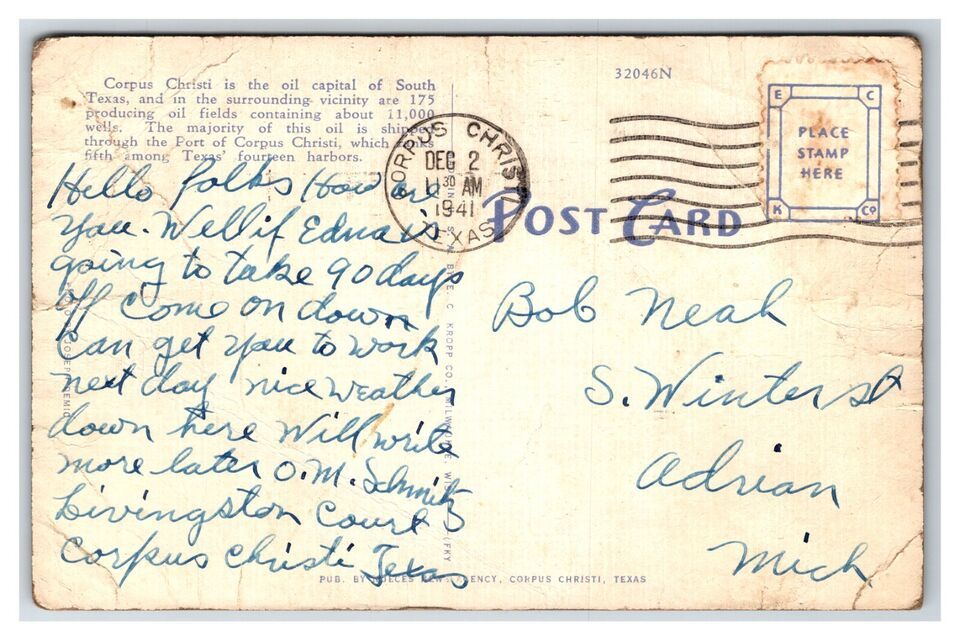 Corpus Christi is the oil capital of South
Texas, and in the surrounding vicinity are 175
producing oil fields containing about 11,000
wells. The majority of this oil is shipped
through the Port of Corpus Christi, which ranks
fifth among Texas' fourteen harbors.
Hello folks How are
you. Well if Edna is
going to take 90 days
off come on down
Can get you to work
next day nice weather
down here Will write
more later O.M. Schmitz
Livingston Court
Corpus Christi Texas
C. KROPP CO.,
32046N
CORPUS CHRISTI
DEC 2
11 30 AM
1941
TEXAS
POST CARD
E C
PLACE
STAMP
HERE
K Co
Bob Neah
S. Winter st
Adrian
Mich.
PUB. BY NUECES NEWS AGENCY, CORPUS CHRISTI, TEXAS